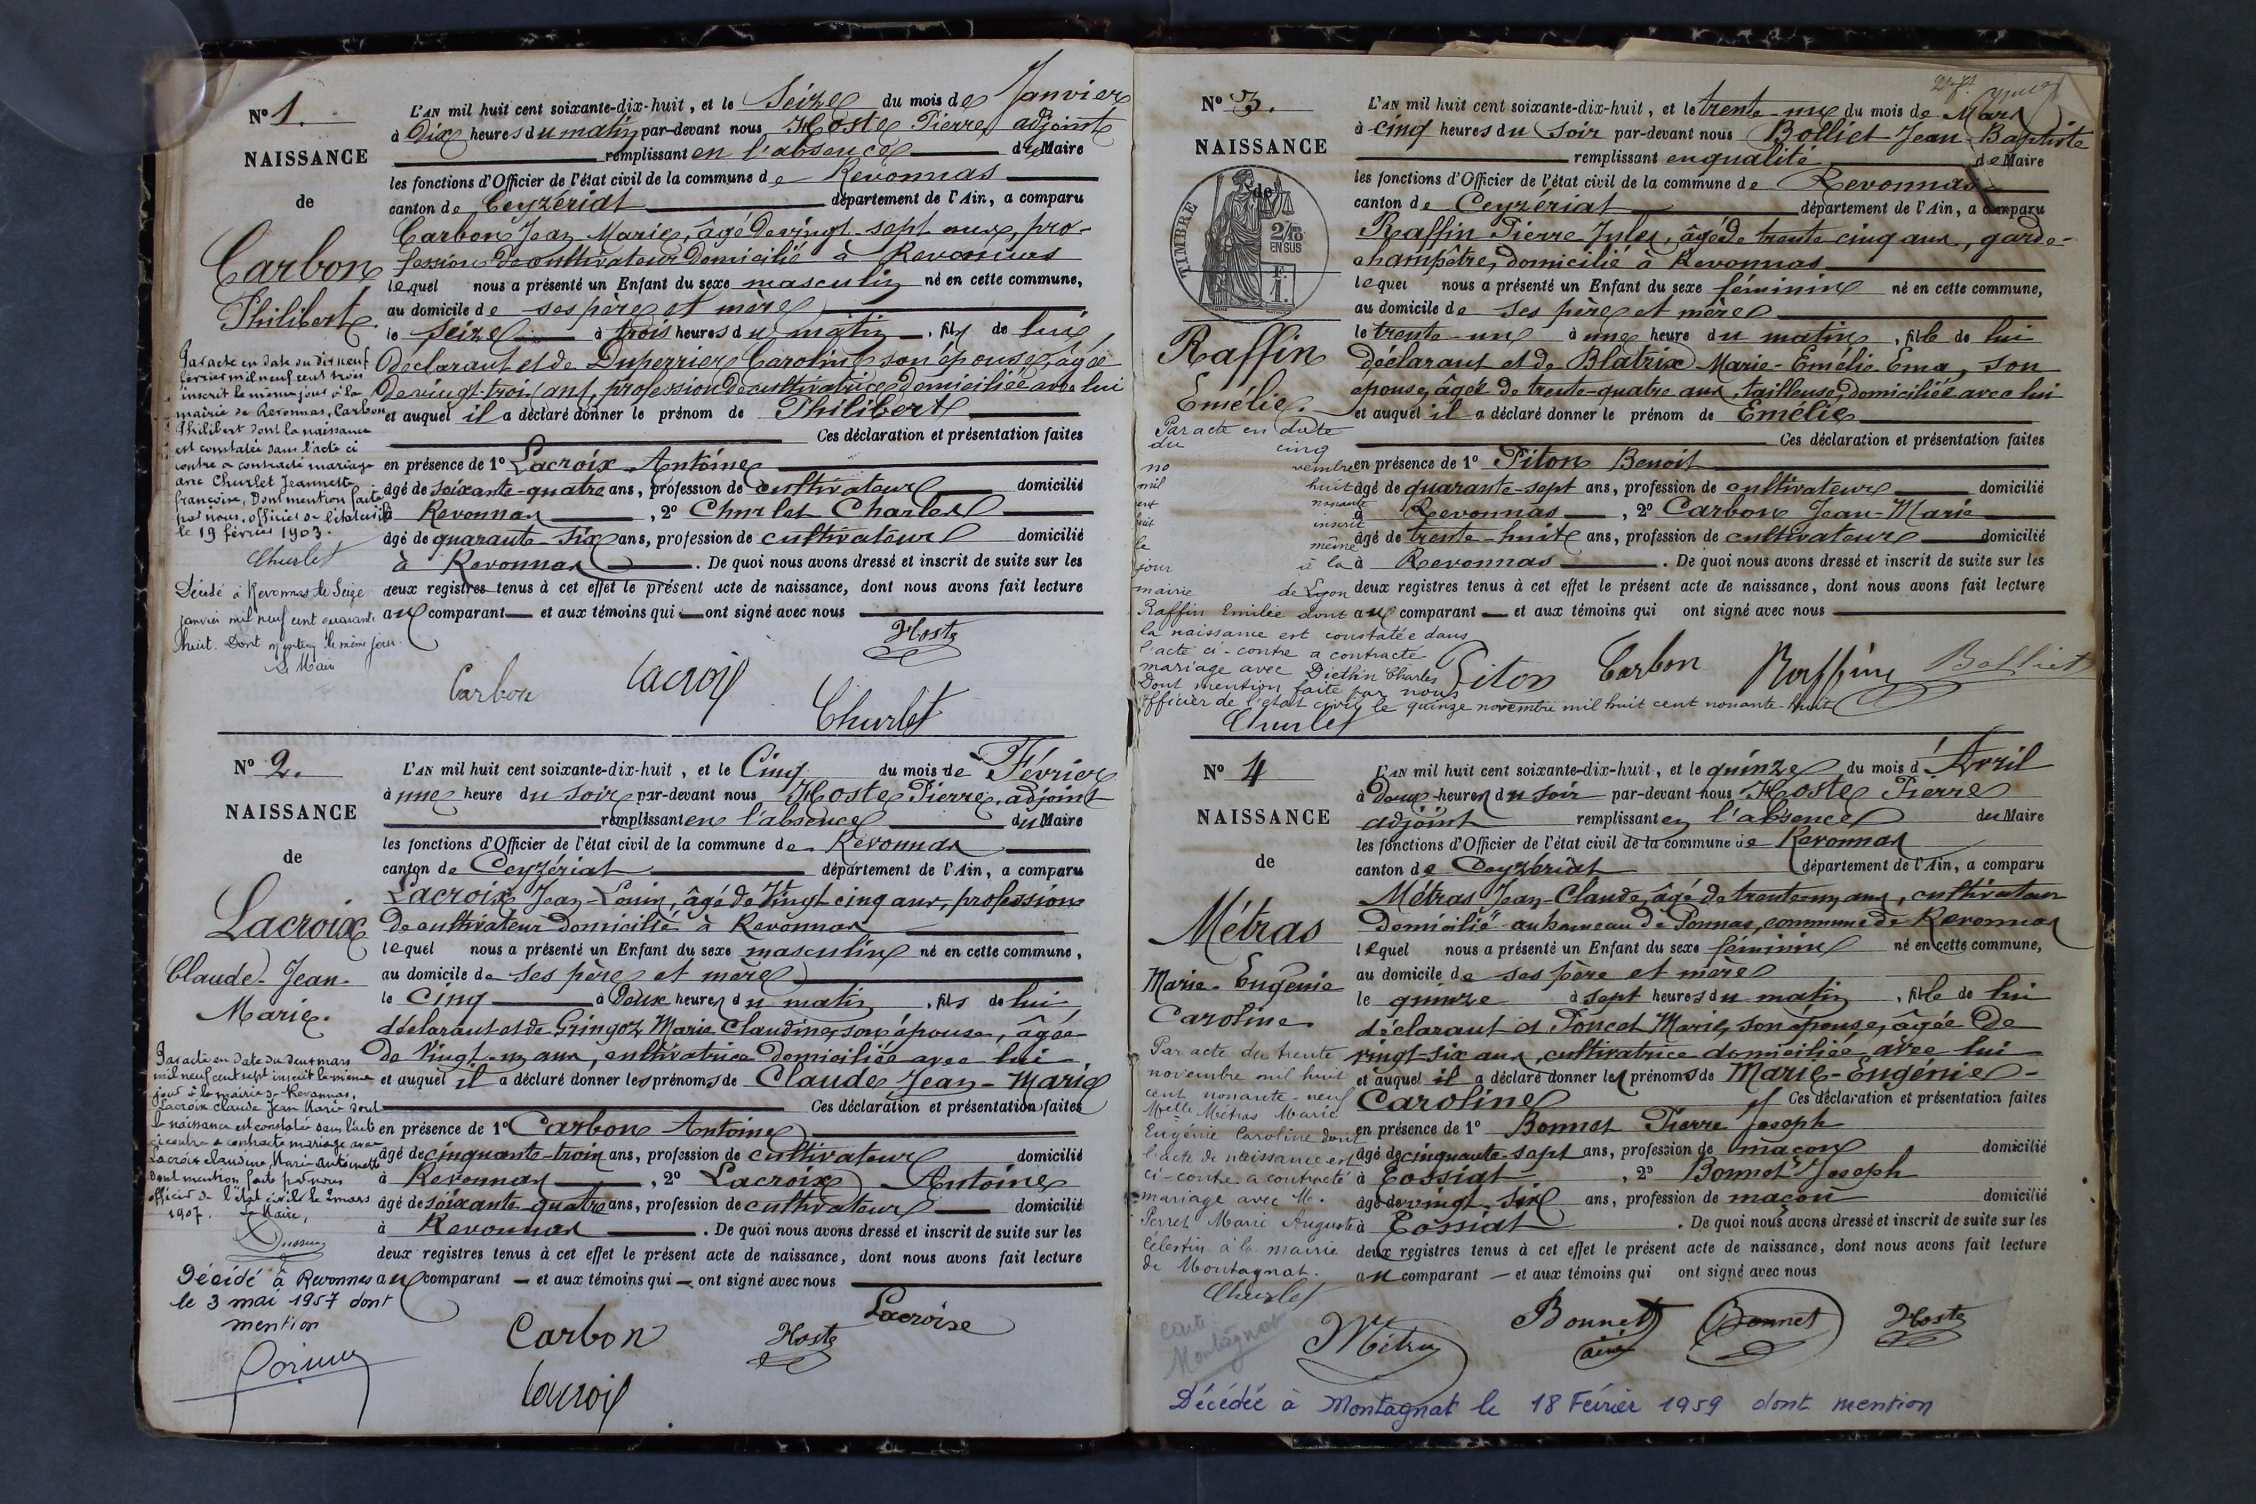 N° 1.
NAISSANCE
de
Carbon
Philibert
L'AN mil huit cent soixante-dix-huit, et le Seize du mois de Janvier
à Dix heures du matin par-devant nous Hoste Pierre adjoint
remplissant en l'absence du Maire
les fonctions d'Officier de l'état civil de la commune de Revonnas
canton de Ceyzériat département de l'Ain, a comparu
Carbon Jean Marie, âgé de vingt-sept ans, pro-
fession de cultivateur domicilié à Revonnas
lequel nous a présenté un Enfant du sexe masculin né en cette commune,
au domicile de ses père et mère
le seize à trois heures du matin, fils de lui
déclarant et de Duperrier Caroline son épouse, âgée
de vingt-trois ans, profession de cultivatrice domiciliée avec lui
et auquel il a déclaré donner le prénom de Philibert
Ces déclaration et présentation faites
en présence de 1° Lacroix Antoine
âgé de soixante-quatre ans, profession de cultivateur domicilié
à Revonnas, 2° Churlet Charles
âgé de quarante-six ans, profession de cultivateur domicilié
à Revonnas. De quoi nous avons dressé et inscrit de suite sur les
deux registres tenus à cet effet le présent acte de naissance, dont nous avons fait lecture
au comparant et aux témoins qui ont signé avec nous
Par acte en date du dix neuf
février mil neuf cent trois
inscrit le même jour à la
mairie de Revonnas, Carbon
Philibert dont la naissance
est constatée dans l'acte ci
contre a contracté mariage
avec Churlet Jeannette
françoise, Dont mention faite
par nous, officier de l'état civil
le 19 février 1903.
Churlet
Décédé à Revonnas le Seize
janvier mil neuf cent quarante
huit. Dont mention le même jour.
Le Maire
Hoste
Carbon Lacroix
Churlet
N° 2.
NAISSANCE
de
Lacroix
Claude-Jean-
Marie.
L'AN mil huit cent soixante-dix-huit, et le Cinq du mois de Février
à une heure du soir par-devant nous Hoste Pierre, adjoint
remplissant en l'absence du Maire
les fonctions d'Officier de l'état civil de la commune de Revonnas
canton de Ceyzériat département de l'Ain, a comparu
Lacroix Jean-Louis, âgé de Vingt cinq ans, profession
de cultivateur domicilié à Revonnas
lequel nous a présenté un Enfant du sexe masculin né en cette commune,
au domicile de ses père et mère
le cinq à Deux heures du matin, fils de lui
déclarant et de Gringoz Marie Claudine, son épouse, âgée
de Vingt-un ans, cultivatrice domiciliée avec lui
et auquel il a déclaré donner les prénoms de Claude Jean-Marie
Ces déclaration et présentation faites
en présence de 1° Carbon Antoine
âgé de cinquante-trois ans, profession de cultivateur domicilié
à Revonnas, 2° Lacroix Antoine
âgé de soixante quatre ans, profession de cultivateur domicilié
à Revonnas. De quoi nous avons dressé et inscrit de suite sur les
deux registres tenus à cet effet le présent acte de naissance, dont nous avons fait lecture
au comparant et aux témoins qui ont signé avec nous
Par acte en date du deux mars
mil neuf cent sept inscrit le même
jour à la mairie de Revonnas,
Lacroix Claude Jean Marie dont
la naissance est constatée dans l'acte
ci contre a contracté mariage avec
Lacroix Claudine Marie Antoinette
Dont mention faite par nous
officier de l'état civil le 2 mars
1907. Le Maire,
Décédé à Revonnas
le 3 mai 1957 dont
mention
Lacroix
Carbon Hoste
Lacroix
N° 3.
NAISSANCE
de
TIMBRE
2/10 EN SUS
Raffin
Emélie.
L'AN mil huit cent soixante-dix-huit, et le trente-un du mois de Mars
à cinq heures du soir par-devant nous Bolliet Jean-Baptiste
remplissant en qualité de Maire
les fonctions d'Officier de l'état civil de la commune de Revonnas
canton de Ceyzériat département de l'Ain, a comparu
Raffin Pierre Jules, âgé de trente cinq ans, garde-
champêtre, domicilié à Revonnas
lequel nous a présenté un Enfant du sexe féminin né en cette commune,
au domicile de ses père et mère
le trente-un à une heure du matin, fille de lui
déclarant et de Blatrix Marie-Emélie Ema, son
epouse, âgée de trente-quatre ans, tailleuse, domiciliée avec lui
et auquel il a déclaré donner le prénom de Emélie
Ces déclaration et présentation faites
en présence de 1° Piton Benoit
âgé de quarante-sept ans, profession de cultivateur domicilié
à Revonnas, 2° Carbon Jean-Marie
âgé de trente-huit ans, profession de cultivateur domicilié
à Revonnas. De quoi nous avons dressé et inscrit de suite sur les
deux registres tenus à cet effet le présent acte de naissance, dont nous avons fait lecture
au comparant et aux témoins qui ont signé avec nous
Par acte en date
du cinq
no vembre
mil huit
cent nonante
huit inscrit
le même
jour à la
mairie de Lyon
Raffin Emilie dont
la naissance est constatée dans
l'acte ci-contre a contracté
mariage avec Diethin Charles
Dont mention faite par nous
Officier de l'état civil le quinze novembre mil huit cent nonante-huit
Churlet
Piton Carbon Raffin Bolliet
N° 4
NAISSANCE
de
Métras
Marie-Eugénie
Caroline.
L'AN mil huit cent soixante-dix-huit, et le quinze du mois d'Avril
à Deux heures du soir par-devant nous Hoste Pierre
adjoint remplissant en l'absence du Maire
les fonctions d'Officier de l'état civil de la commune de Revonnas
canton de Ceyzériat département de l'Ain, a comparu
Métras Jean-Claude, âgé de trente-un ans, cultivateur
Domicilié au hameau de Ponnas, commune de Revonnas
lequel nous a présenté un Enfant du sexe féminin né en cette commune,
au domicile de ses père et mère
le quinze à sept heures du matin, fille de lui
déclarant et Poncet Marie, son épouse, âgée De
vingt-six ans, cultivatrice domiciliée avec lui
et auquel il a déclaré donner les prénoms de Marie-Eugénie-
Caroline Ces déclaration et présentation faites
en présence de 1° Bonnet Pierre Joseph
âgé de cinquante-sept ans, profession de maçon domicilié
à Tossiat, 2° Bonnet Joseph
âgé de vingt-six ans, profession de maçon domicilié
à Tossiat. De quoi nous avons dressé et inscrit de suite sur les
deux registres tenus à cet effet le présent acte de naissance, dont nous avons fait lecture
au comparant et aux témoins qui ont signé avec nous
Par acte du trente
novembre mil huit
cent nonante-neuf
Melle Métras Marie
Eugénie Caroline dont
l'acte de naissance est
ci-contre a contracté
mariage avec M.
Perret Marie Auguste
Célestin à la mairie
de Montagnat.
Churlet
Montagnat
Métras Bonnet ainé Bonnet Hoste
Décédée à Montagnat le 18 Février 1959 dont mention